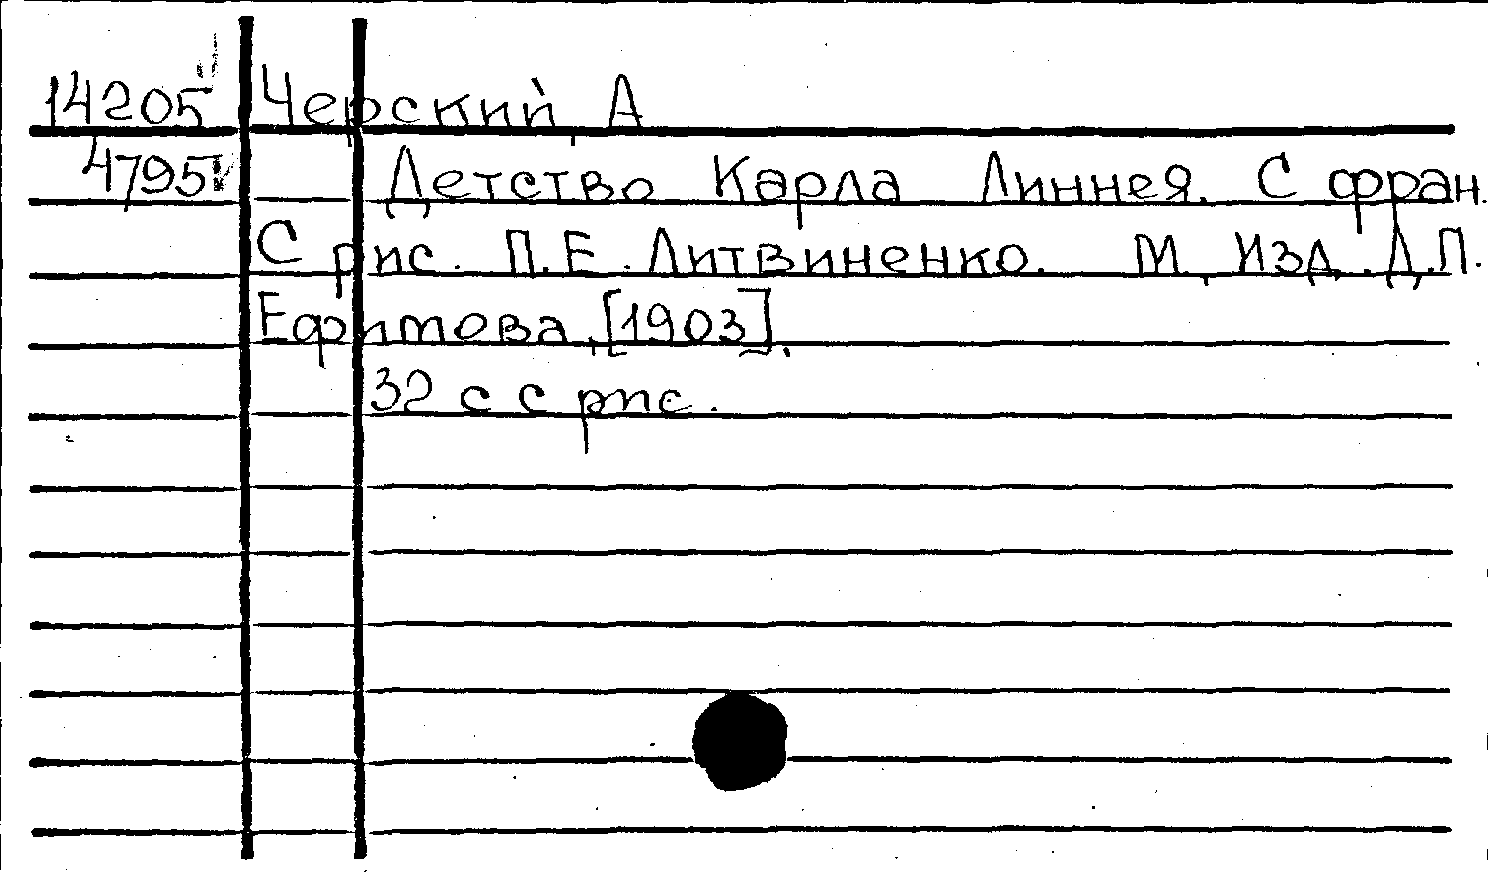 14205 Черский, А
4795 Детство Карла Линнея. С фран.
С рис. П.Е. Литвиненко. М., Изд. Д.П.
Ефимова, [1903].
32 с с рис.